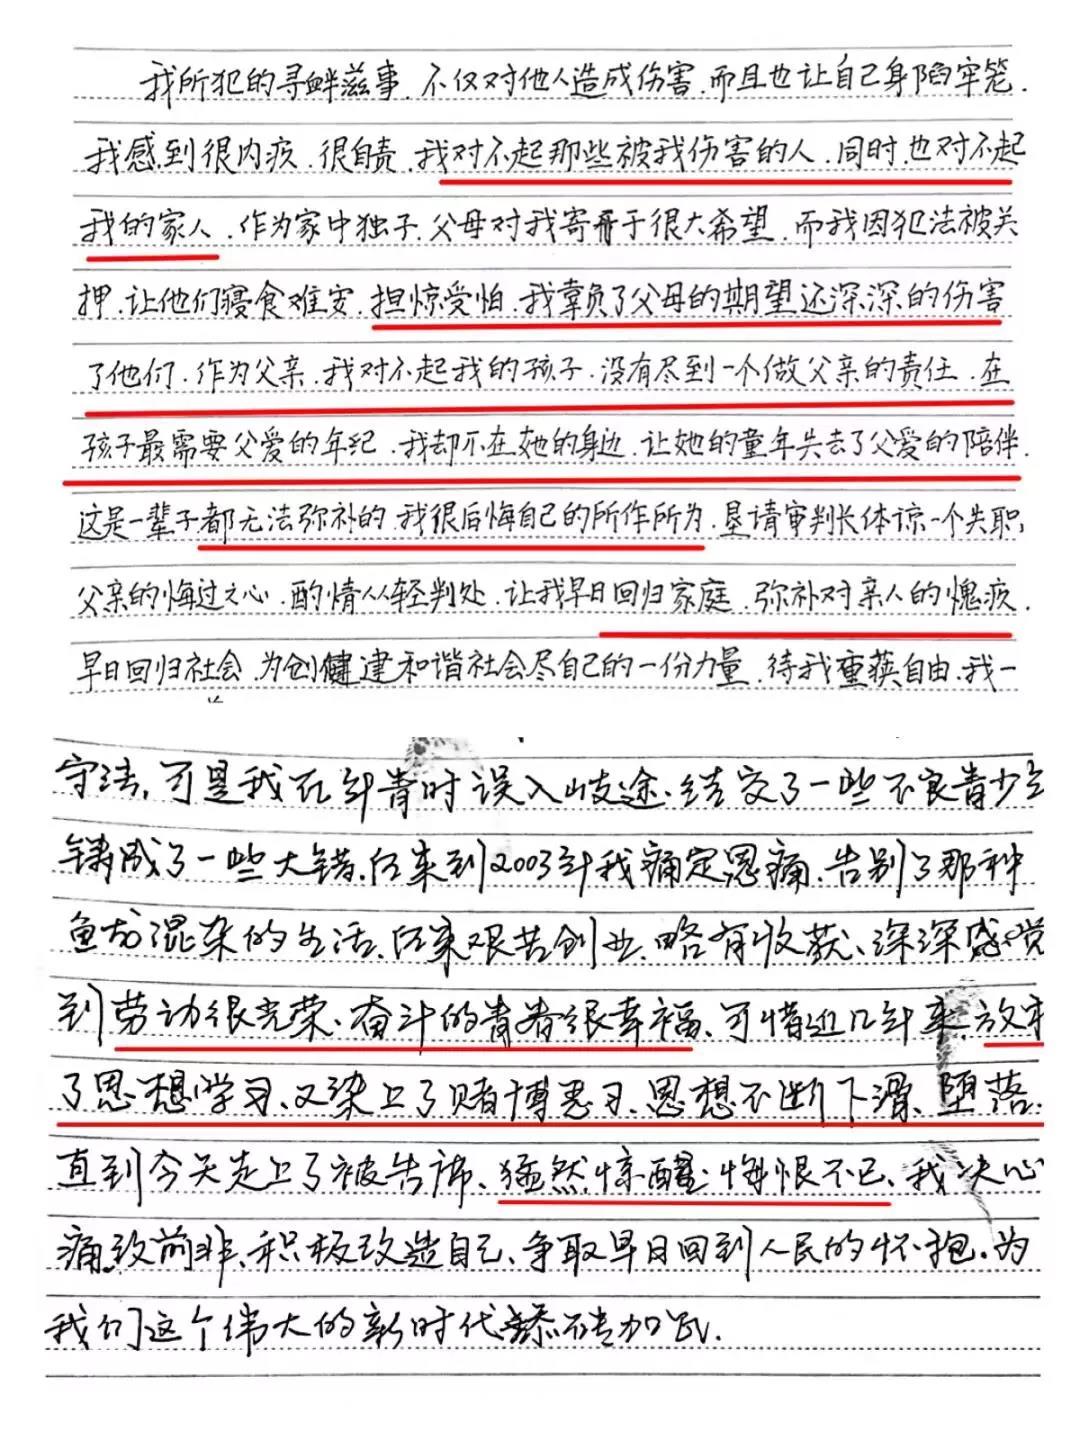 我所犯的寻衅滋事.不仅对他人造成伤害.而且也让自己身陷牢笼.
我感到很内疚.很自责.我对不起那些被我伤害的人.同时.也对不起
我的家人.作为家中独子.父母对我寄于很大希望.而我因犯法被关
押.让他们寝食难安.担惊受怕.我辜负了父母的期望还深深的伤害
了他们.作为父亲.我对不起我的孩子.没有尽到一个做父亲的责任.在
孩子最需要父爱的年纪.我却不在她的身边.让她的童年失去了父爱的陪伴.
这是一辈子都无法弥补的.我很后悔自己的所作所为.恳请审判长体谅一个失职
父亲的悔过之心.酌情从轻判处.让我早日回归家庭.弥补对亲人的愧疚.
早日回归社会.为创建和谐社会尽自己的一份力量.待我重获自由.我一
守法,可是我在年青时误入歧途、结交了一些不良青少
铸成了一些大错.后来到2003年我痛定思痛.告别了那种
鱼龙混杂的生活.后来艰苦创业、略有收获、深深感觉
到劳动很光荣、奋斗的青春很幸福、可惜近几年来.放
了思想学习、又染上了赌博恶习、思想不断下滑、堕落、
直到今天走上了被告席、猛然惊醒、悔恨不已、我决心
痛改前非、积极改造自己、争取早日回到人民的怀抱.为
我们这个伟大的新时代添砖加瓦.